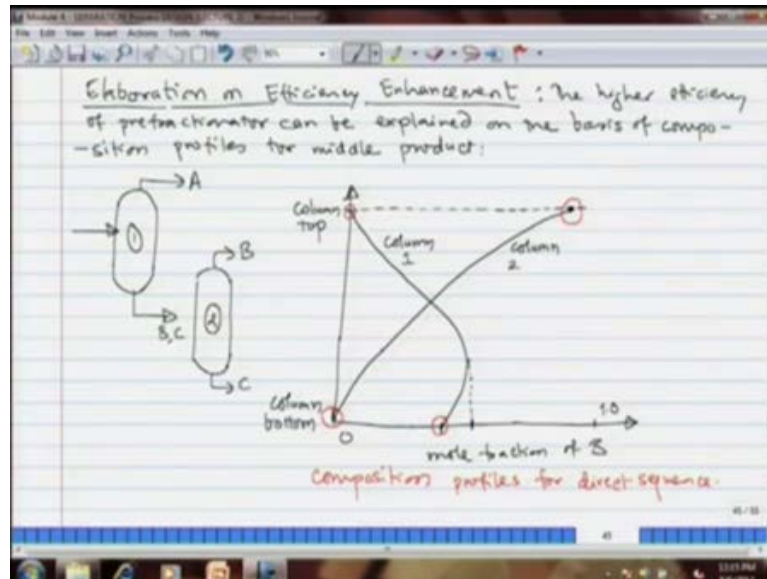 File Edit View Insert Actions Tools Help
Elaboration on Efficiency Enhancement : The higher efficiency
of prefractionator can be explained on the basis of compo-
-sition profiles for middle product:
A
1
B,C
B
2
C
column top
column 1
column 2
column bottom
0
1.0
mole fraction of B
composition profiles for direct sequence.
45